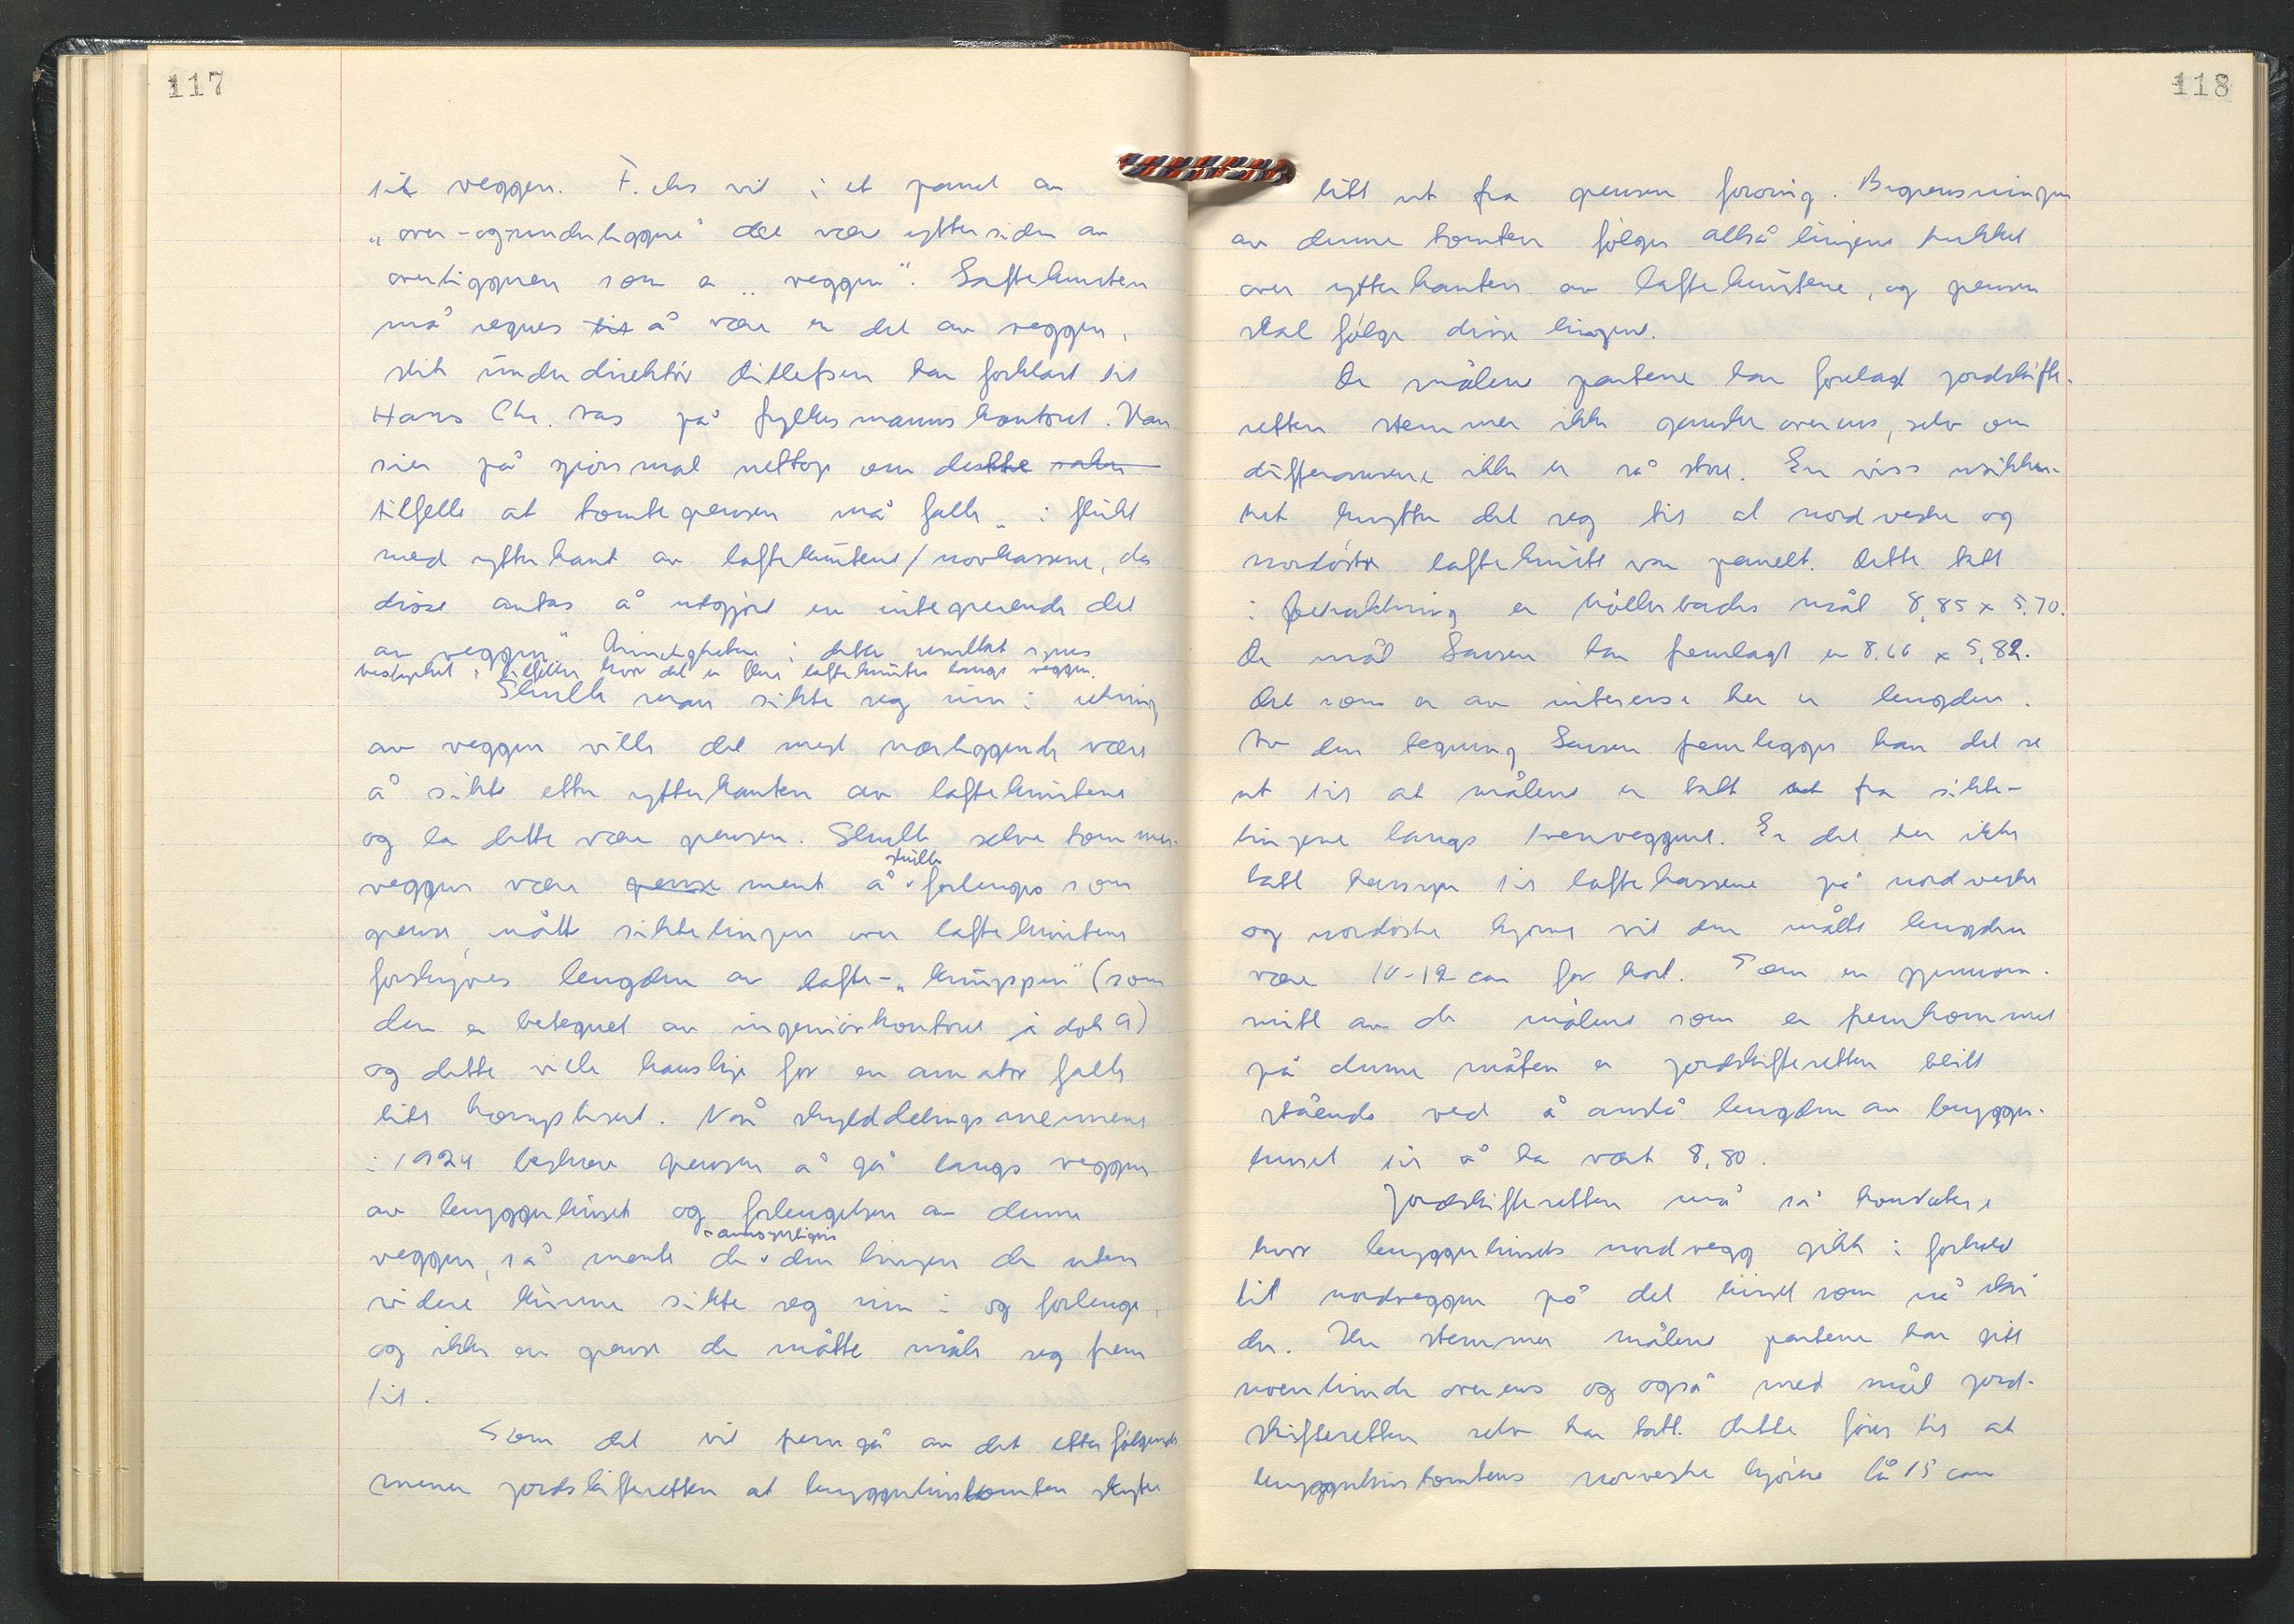 117
til veggen. F. eks vil i et panel av
„over-og-underliggere" det være yttersiden av
overliggeren som er „veggen". Lafteknuten
må regnes å være en del av veggen,
slik underdirektör Ditlefsen har forklart til
Hans Chr. Vas på fylkesmannskontoret. Han
sier på spörsmål nettop om dette
tilfelle at tomtegrensen må falle „i flukt
med ytterkant av lafteknutene/novkassene, da
disse antas å utgjöre en integrerende del
av veggen" Rimeligheten i dette resultat synes
bestyrket i tilfeller hvor det er flere lafteknuter langs veggen.
Skulle man sikte seg inn i retning
av veggen ville det mest nærliggende være
å sikte etter ytterkanten av lafteknutene
og la dette være grensen. Skulle selve tommer-
veggen være ment å skulle forlenges som
grense, måtte siktelinjen over lafteknutene
forskyves lengden av lafte-„knuppen" (som
den er betegnet av ingeniörkontoret i dok 9)
og dette ville kanskje for en amatör falle
litt komplisert. Når skylddelingsmennene
i 1924 beskrev grensen å gå langs veggen
av bryggerhuset og forlengelsen av denne
veggen, så mente de sannsynligvis den linjen de uten
videre kunne sikte seg inn i og forlenge,
og ikke en grense de måtte måle seg frem
til.
Som det vil fremgå av det etterfölgende
mener jordskifteretten at bryggerhustomten skyter
118
litt ut fra grensen forövrig. Begrensningen
av denne tomten fölger altså linjene trukket
over ytterkanten av lafteknutene, og grensen
skal fölge disse linjene.
De målene partene har forelagt jordskifte-
retten stemmer ikke ganske overens, selv om
differansene ikke er så store. En viss usikker-
het knytter det seg til at nordvestre og
nordöstre lafteknute var panelt. Dette tatt
i betraktning er Möllerbachs mål 8,85 x 5.70.
De mål Larsen har fremlagt er 8.66 x 5,82.
Det som er av interesse her er lengden.
Av den tegning Larsen fremlegger kan det se
ut til at målene er tatt fra sikte-
linjene langs tverrveggene. Er det her ikke
tatt hensyn til laftekassene på nordvestre
og nordöstre hjörne vil den målte lengden
være 10-12 cm for kort. Som en gjennom-
snitt av de målene som er fremkommet
på denne måten er jordskifteretten blitt
stående ved å anslå lengden av brygger-
huset til å ha vært 8,80.
Jordskifteretten må så konstatere
hvor bryggerhusets nordvegg gikk i forhold
til nordveggen på det huset som nå står
der. Her stemmer målene partene har gitt
noenlunde overens og også med mål jord-
skifteretten selv har tatt. Dette förer til at
bryggerhustomtens norvestre hjörne lå 15 cm